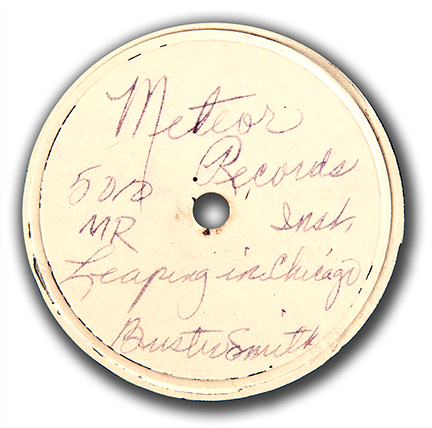 Meteor
Records
5010
MR Inst.
Leaping in Chicago
Buster Smith